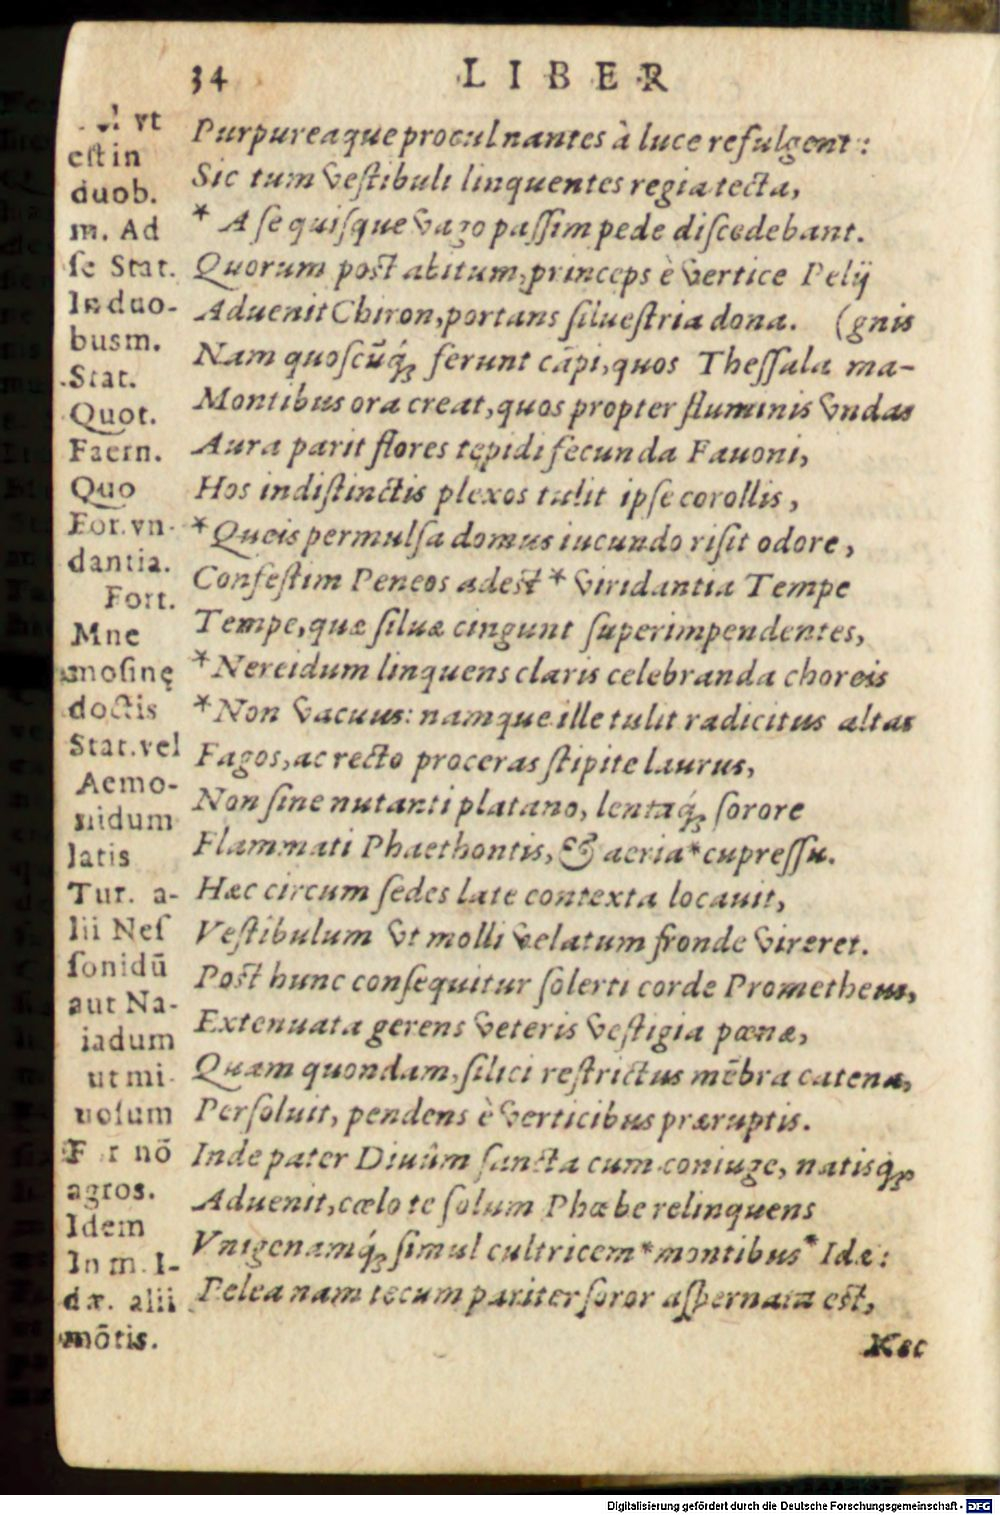 34 LIBER
vt
est in
duob.
m. Ad
se Stat.
In duo-
bus m.
Stat.
Quot.
Faern.
Quo
For. vn-
dantia.
Fort.
Mne
mosinę
doctis
Stat. vel
Aemo-
nidum
latis
Tur. a-
lii Nes
sonidū
aut Na-
iadum
ut mi
uosum
F r nō
agros.
Idem
In m. I-
dæ. alii
mōtis.
Purpureaque procul nantes à luce refulgent:
Sic tum vestibuli linquentes regia tecta,
* A se quisque vago passim pede discedebant.
Quorum post abitum, princeps è vertice Pelij
Aduenit Chiron, portans siluestria dona. (gnis
Nam quoscūq́; ferunt cāpi, quos Thessala ma-
Montibus ora creat, quos propter fluminis vndas
Aura parit flores tepidi fecunda Fauoni,
Hos indistinctis plexos tulit ipse corollis,
*Queis permulsa domus iucundo risit odore,
Confestim Peneos adest * viridantia Tempe
Tempe, quæ siluæ cingunt superimpendentes,
*Nereidum linquens claris celebranda choreis
*Non vacuus: namque ille tulit radicitus altas
Fagos, ac recto proceras stipite laurus,
Non sine nutanti platano, lentaq́; sorore
Flammati Phaethontis, & aeria * cupressu.
Hæc circum sedes late contexta locauit,
Vestibulum vt molli velatum fronde vireret.
Post hunc consequitur solerti corde Prometheus,
Extenuata gerens veteris vestigia pœnæ,
Quam quondam, silici restrictus mēbra catena,
Persoluit, pendens è verticibus præruptis.
Inde pater Diuûm sancta cum coniuge, natisq́;
Aduenit, cælo te solum Phœbe relinquens
Vnigenamq́; simul cultricem * montibus * Idæ:
Pelea nam tecum pariter soror aspernata est,
Nec
Digitalisierung gefördert durch die Deutsche Forschungsgemeinschaft - DFG